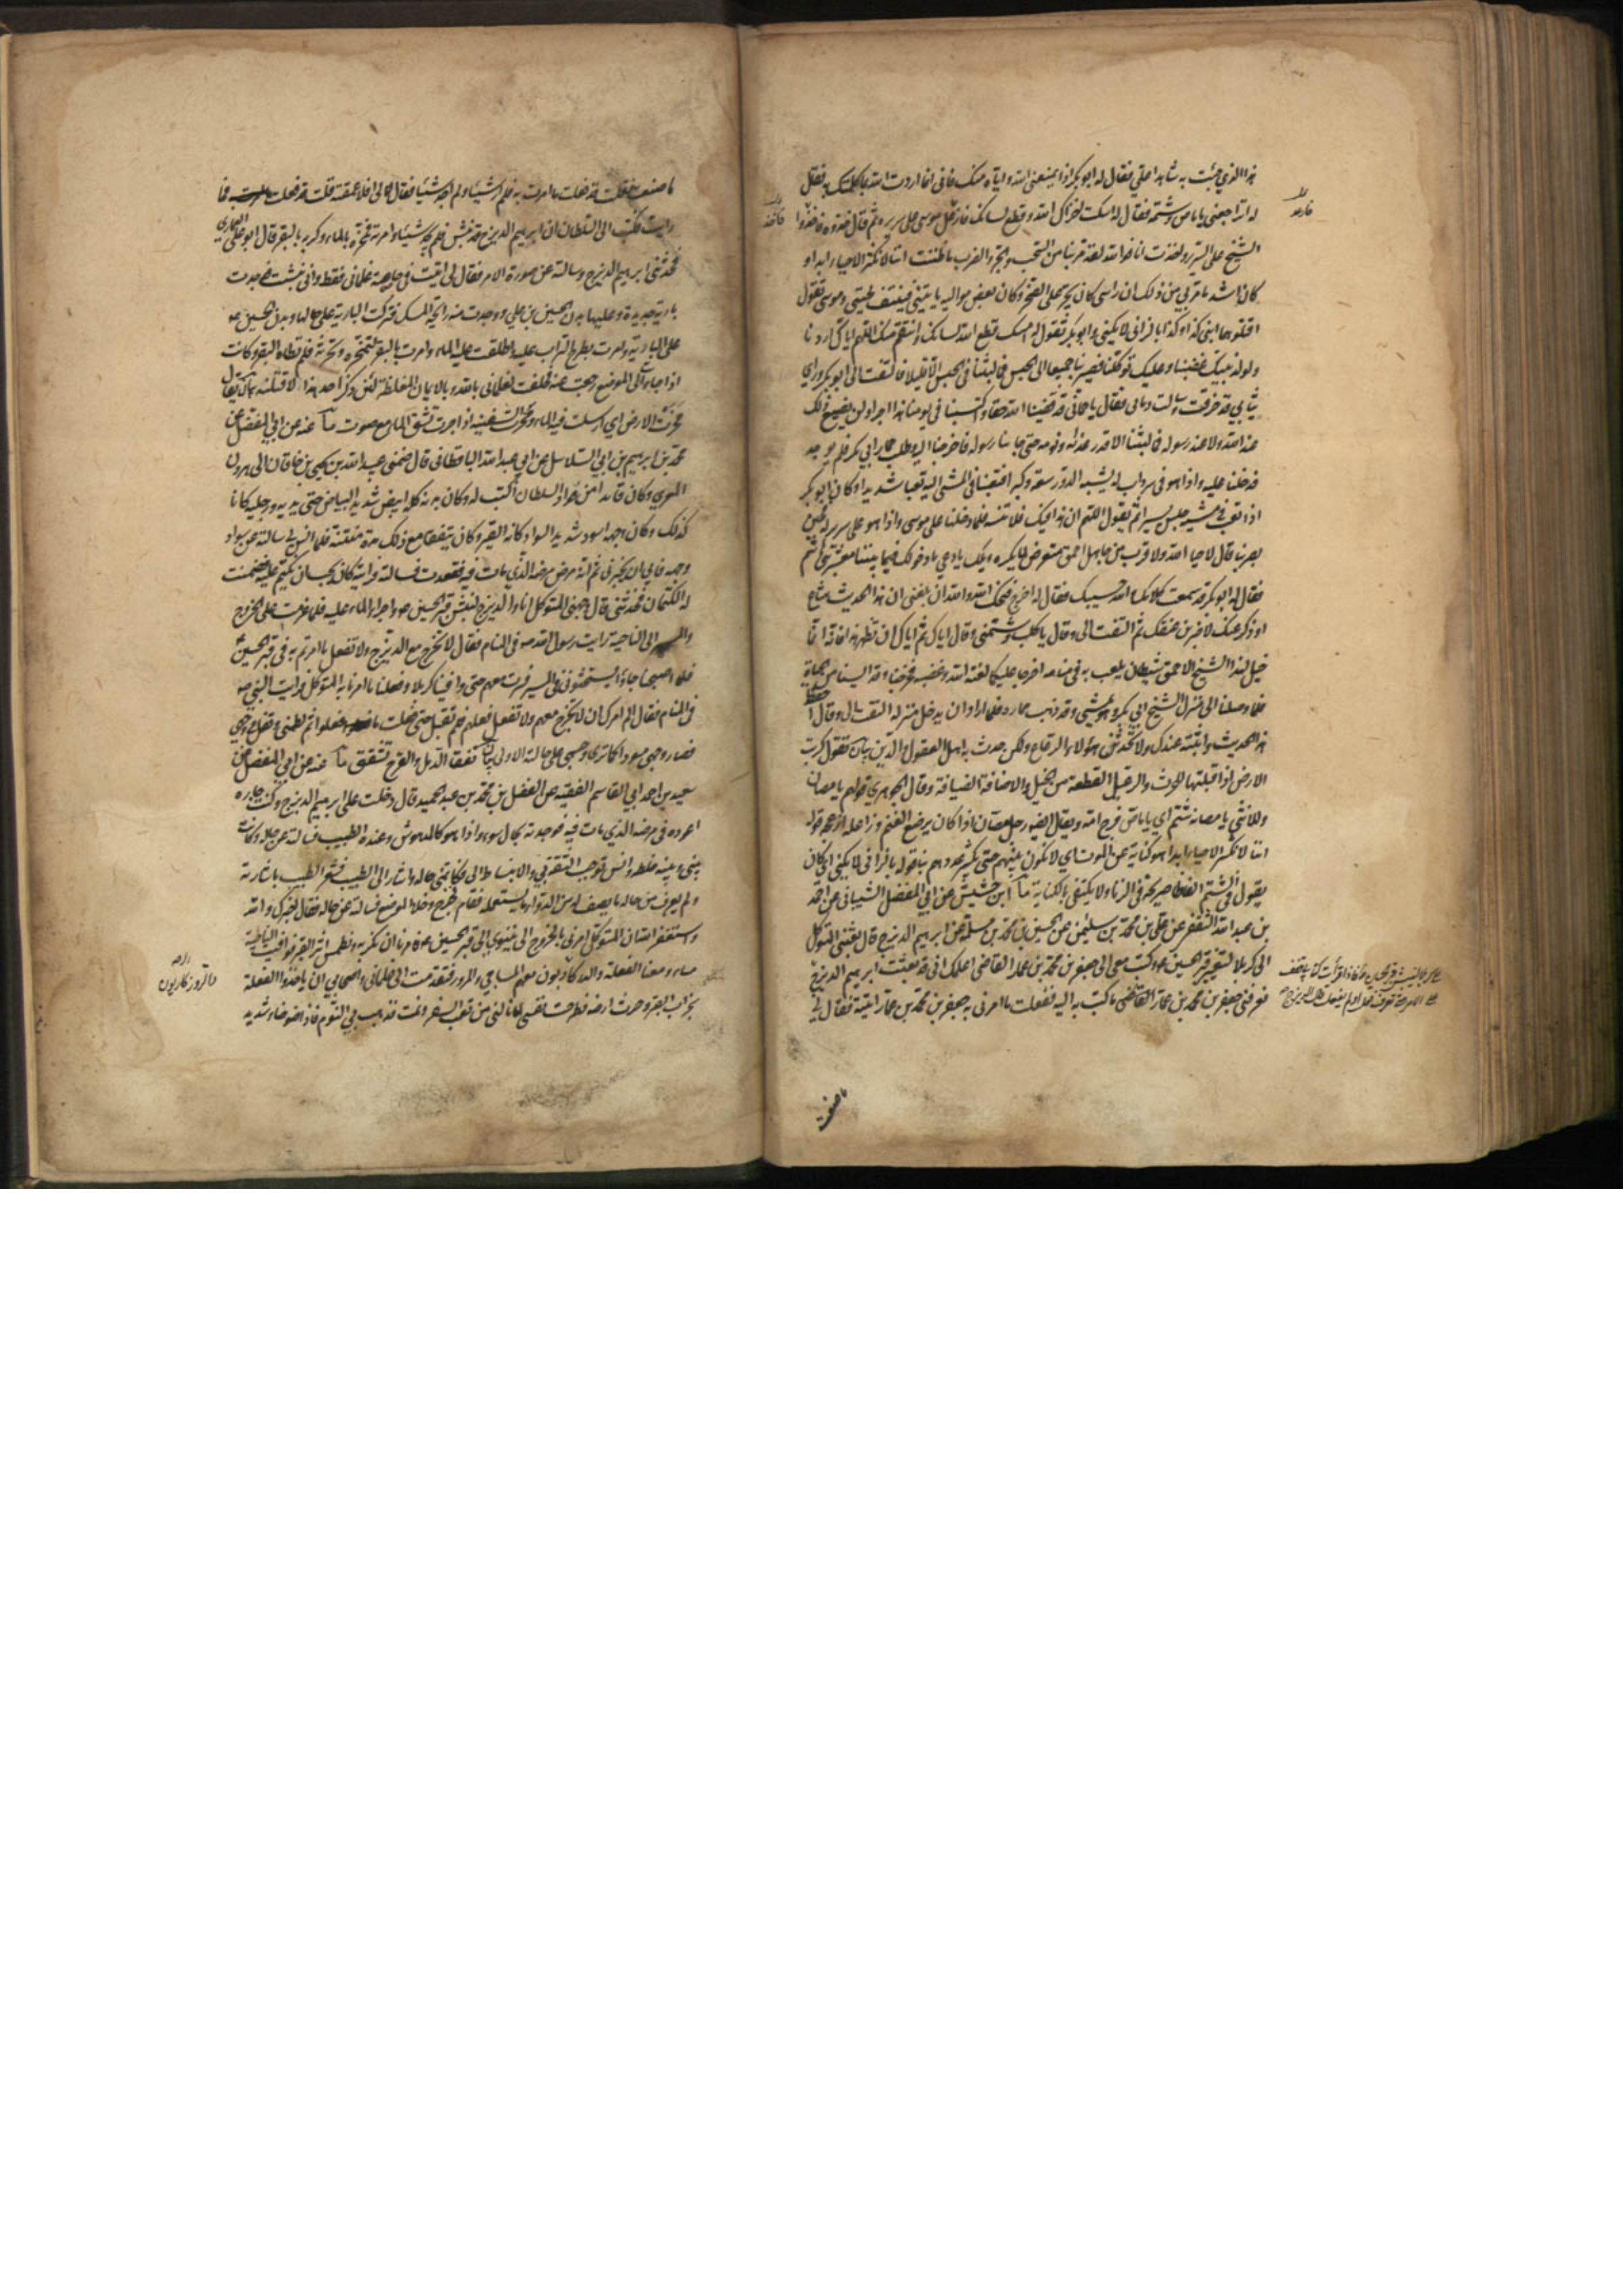 هذا الذي جئت به شاهدا علي فقال له ابو بكر اذا يمنعني الله واياه منك فاني انما اردت الله بما كلمتك به فقال
له اتراجعني يا ماص وشتمه فقال له اسكت اخزاك الله وقطع لسانك فازعل موسى على سريره ثم قال خذوه فاخذوا
الشيخ على السرير واخذت انا فوالله لقد مر بنا من السحب والجر والضرب ما ظننت اننا لا نكثر الاحياء ابدا و
كان اشد ما مر بي من ذلك ان راسي كان يجر على الصخر وكان بعض مواليه ياتيني فينتف لحيتي وموسى يقول
اقتلوهما ابني كذا وكذا بالزاني لا يكني وابو بكر يقول له امسك قطع الله لسانك وانتقم منك اللهم اياك اردنا
ولولد نبيك غضبنا وعليك توكلنا فصير بنا جميعا الى الحبس فما لبثنا في الحبس الا قليلا فالتفت الى ابو بكر وراى
ثيابي قد خرقت وسالت دمائي فقال يا حماني قد قضينا لله حقا واكتسبنا في يومنا هذا اجرا ولن يضيع ذلك
عند الله ولا عند رسوله فما لبثنا الا قدر غدائه ونومه حتى جاءنا رسوله فاخرجنا اليه وطلب حمار ابي بكر فلم يوجد
فدخلنا عليه واذا هو في سرداب له يشبه الدور سعة وكبرا فتعبنا في المشي اليه تعبا شديدا وكان ابو بكر
اذا تعب في مشيه جلس يسيرا ثم يقول اللهم ان هذا فيك فلا تنسه فلما دخلنا على موسى واذا هو على سرير له فحين
بصر بنا قال لا حيا الله ولا قرب من جاهل احمق يتعرض لما يكره ويلك يا دعي ما دخولك فيما بيننا معشر بني هاشم
فقال له ابو بكر قد سمعت كلامك والله حسيبك فقال له اخرج قبحك الله والله ان بلغني ان هذا الحديث شاع
او ذكر عنك لاضربن عنقك ثم التفت الي وقال يا كلب وشتمني وقال اياك ثم اياك ان تظهر هذا فانه انما
خيل لهذا الشيخ الاحمق شيطان يلعب به في منامه اخرجا عليكما لعنة الله وغضبه فخرجنا وقد ايسنا من الحياة
فلما وصلنا الى منزل الشيخ ابي بكر وهو يمشي وقد ذهب حماره فلما اراد ان يدخل منزله التفت الي وقال احفظ
هذا الحديث واثبته عندك ولا تحدثن هؤلاء الرعاع ولكن حدث به اهل العقول والدين بيان تقول كربت
الارض اذا قلبتها للحرث والرعيل القطعة من الخيل والاضافة الضيافة وقال الجوهري قولهم يا مصان
وللانثى يا مصانة شتم اي يا ماص فرج امه ويقال ايضا رجل مصان اذا كان يرضع الغنم وازعله ازعجه قوله
اننا لا نكثر الاحياء ابدا هو كناية عن الموت اي لا نكون بينهم حتى يكثر عددهم بنا قوله بالزاني لا يكني اي كان
يقول في الشتم الفاظا صريحة في الزنا ولا يكتفي بالكناية ما ابن حشيش عن ابي المفضل الشيباني عن احمد
بن عبد الله الثقفي عن علي بن محمد بن سليمن عن الحسين بن محمد بن مسلمة عن ابرهيم الديزج قال بعثني المتوكل
الى كربلا لتغيير قبر الحسين ع وكتب معي الى جعفر بن محمد بن عمار القاضي اعلمك اني قد بعثت ابرهيم الديزج
فعرفني جعفر بن محمد بن عمار القاضي ما كتب به اليه ففعلت ما امرني به جعفر بن محمد بن عمار ثم اتيته فقال لي
ما صنعت
ما صنعت فقلت قد فعلت ما امرت به فلم ار شيئا ولم اجد شيئا فقال لي افلا عمقته قلت قد فعلت فما
رايت فكتب الى السلطان ان ابرهيم الديزج قد نبش فلم يجد شيئا وامرته فمخره بالماء وكربه بالبقر قال ابو علي العماري
فحدثني ابرهيم الديزج وسالته عن صورة الامر فقال لي اتيت في خاصة غلماني فقط واني نبشت فوجدت
بارية جديدة وعليها بدن الحسين بن علي ووجدت منه رائحة المسك فتركت البارية على حالها وبدن الحسين ع
على البارية وامرت بطرح التراب عليه واطلقت عليه الماء وامرت بالبقر لتمخره وتحرثه فلم تطأه البقر وكانت
اذا جاءت الى الموضع رجعت عنه فحلفت لغلماني بالله وبالايمان المغلظة لئن ذكر احد هذا لاقتلنه بيان يقال
مخرت الارض اي ارسلت فيه الماء ومخرت السفينة اذا جرت تشق الماء مع صوت ما عنه عن ابي المفضل عن
محمد بن ابرهيم بن ابي السلاسل عن ابي عبد الله الباقطاني قال ضمني عبيد الله بن يحيى بن خاقان الى هرون
المعري وكان قائدا من قواد السلطان اكتب له وكان بدنه كله ابيض شديد البياض حتى يديه ورجليه كانا
كذلك وكان وجهه اسود شديد السواد كانه القير وكان يتفقأ مع ذلك مدة منتنة فلما انس بي سالته عن سواد
وجهه فابى ان يخبرني ثم انه مرض مرضه الذي مات فيه فقعدت فسالته فرايته كان يحب ان يكتم عليه فضمنت
له الكتمان فحدثني قال وجهني المتوكل انا والديزج لنبش قبر الحسين ع واجراء الماء عليه فلما عزمت على الخروج
والمسير الى الناحية رايت رسول الله ص في المنام فقال لا تخرج مع الديزج ولا تفعل ما امرتم به في قبر الحسين ع
فلما اصبحنا جاءوا يستحثونني في المسير فسرت معهم حتى وافينا كربلا وفعلنا ما امرنا به المتوكل فرايت النبي ص
في المنام فقال الم امرك ان لا تخرج معهم ولا تفعل فعلهم فلم تقبل حتى فعلت ما فعلوا ثم لطمني وتفل في وجهي
فصار وجهي مسودا كما ترى وجسمي على حالته الاولى بيان تفقأ الدمل والقرح تشقق ما عنه عن ابي المفضل عن
سعيد بن احمد ابي القاسم الفقيه عن الفضل بن محمد بن عبد الحميد قال دخلت على ابرهيم الديزج وكنت جاره
اعوده في مرضه الذي مات فيه فوجدته بحال سوء واذا هو كالمدهوش وعنده الطبيب فسالته عن حاله وكانت
بيني وبينه خلطة وانس توجب الثقة بي والانبساط الي فكاتمني حاله واشار الى الطبيب فشعر الطبيب باشارته
ولم يعرف من حاله ما يصف له من الدواء ما يستعمله فقام فخرج وخلا الموضع فسالته عن حاله فقال اخبرك والله
واستغفر الله ان المتوكل امرني بالخروج الى نينوى الى قبر الحسين ع فامرنا ان نكربه ونطمس اثر القبر فوافيت الناحية
مساء ومعنا الفعلة والدركاربون معهم المساحي والمرور فتقدمت الى غلماني واصحابي ان ياخذوا الفعلة
بخراب القبر وحرث ارضه فطرحت نفسي لما نالني من تعب السفر ونمت فذهب بي النوم فاذا ضوضاء شديد